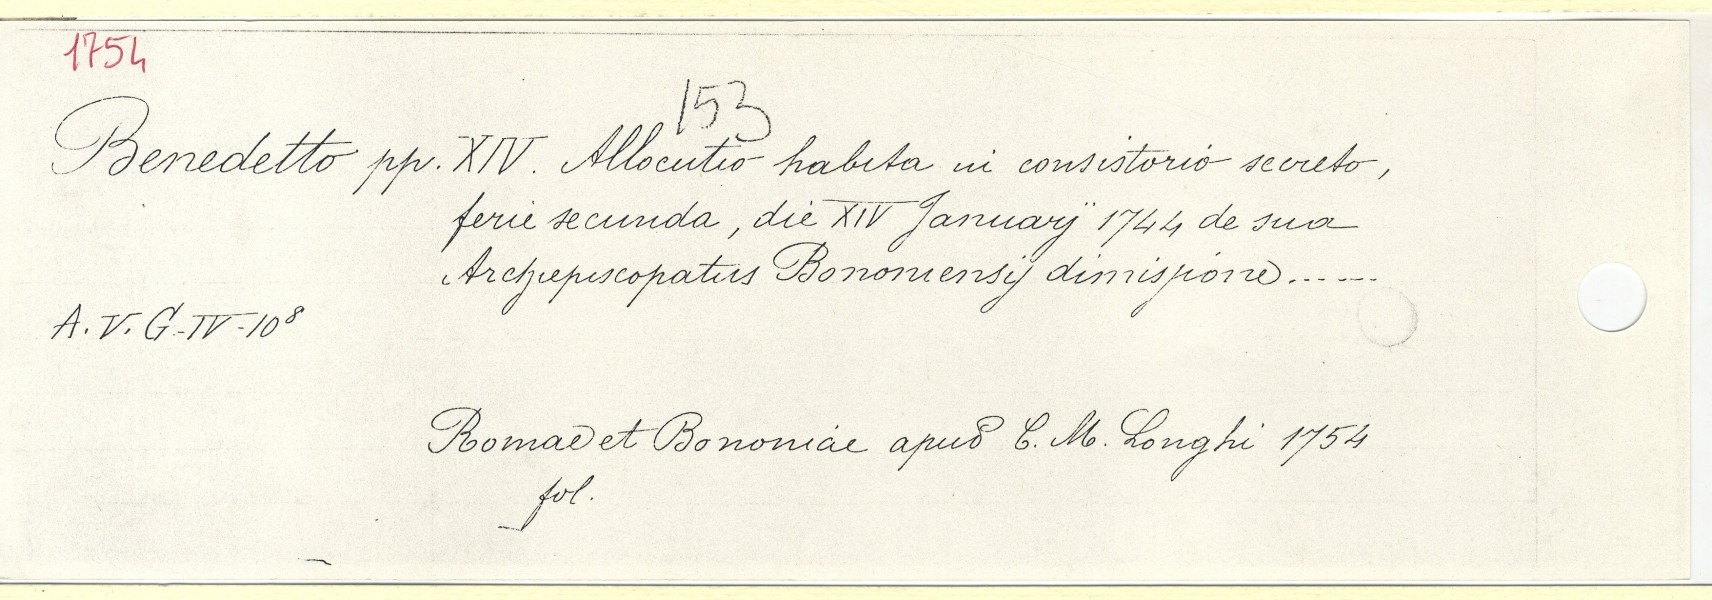 1754
153
Benedetto pp. XIV. Allocutio habita in consistorio secreto,
ferie secunda, die XIV Januarÿ 1744 de sua
Archiepiscopatus Bononiensis dimissione......
A. V. G-IV-10⁸
Romae et Bononiae apud C. M. Longhi 1754
fol.